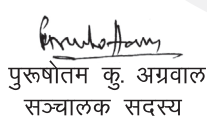 पुरूषोतम कु. अग्रवाल
सञ्चालक सदस्य